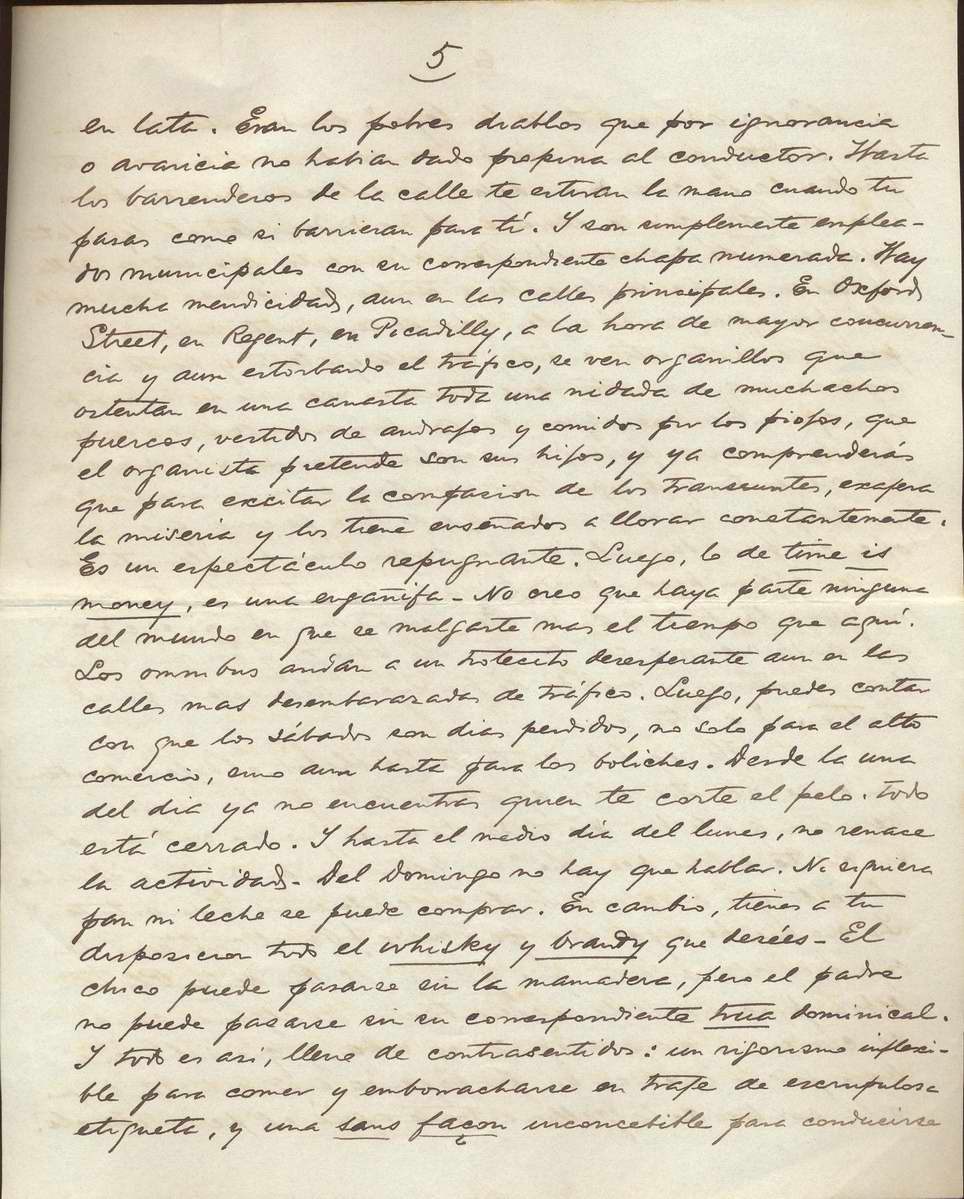 5
en lata. Eran los pobres diablos que por ignorancia
o avaricia no habian dado propina al conductor. Hasta
los barrenderos de la calle te estiran la mano cuando tu
pasas como si barrieran para tí. I son simplemente emplea-
dos municipales con su correspondiente chapa numerada. Hay
mucha mendicidad, aun en las calles principales. En Oxford
Street, en Regent, en Picadilly, a la hora de mayor concurren-
cia y aun estorbando el tráfico, se ven organillos que
ostentan en una canasta toda una nidada de muchachos
puercos, vestidos de andrajos y comidos por los piojos, que
el organista pretende son sus hijos, y ya comprenderás
que para excitar la compasion de los transeuntes, exajera
la miseria y los tiene enseñados a llorar constantemente.
Es un espectáculo repugnante. Luego, lo de time is
money, es una engañifa - No creo que haya parte ninguna
del mundo en que se malgaste mas el tiempo que aquí.
Los omnibus andan a un trotecito desesperante aun en las
calles mas desembarazadas de tráfico. Luego, puedes contar
con que los sábados son dias perdidos, no solo para el alto
comercio, sino aun hasta para los boliches. Desde la una
del dia ya no encuentras quien te corte el pelo. Todo
está cerrado. I hasta el medio dia del lunes, no renace
la actividad - Del Domingo no hay que hablar. Ni siquiera
pan ni leche se puede comprar. En cambio, tienes a tu
disposicion todo el whisky y brandy que desées - El
chico puede pasarse sin la mamadera, pero el padre
no puede pasarse sin su correspondiente trua dominical.
I todo es asi, lleno de contrasentidos: un rigorismo inflexi-
ble para comer y emborracharse en traje de escrupulosa
etiqueta, y una sans façon inconcebible para conducirse